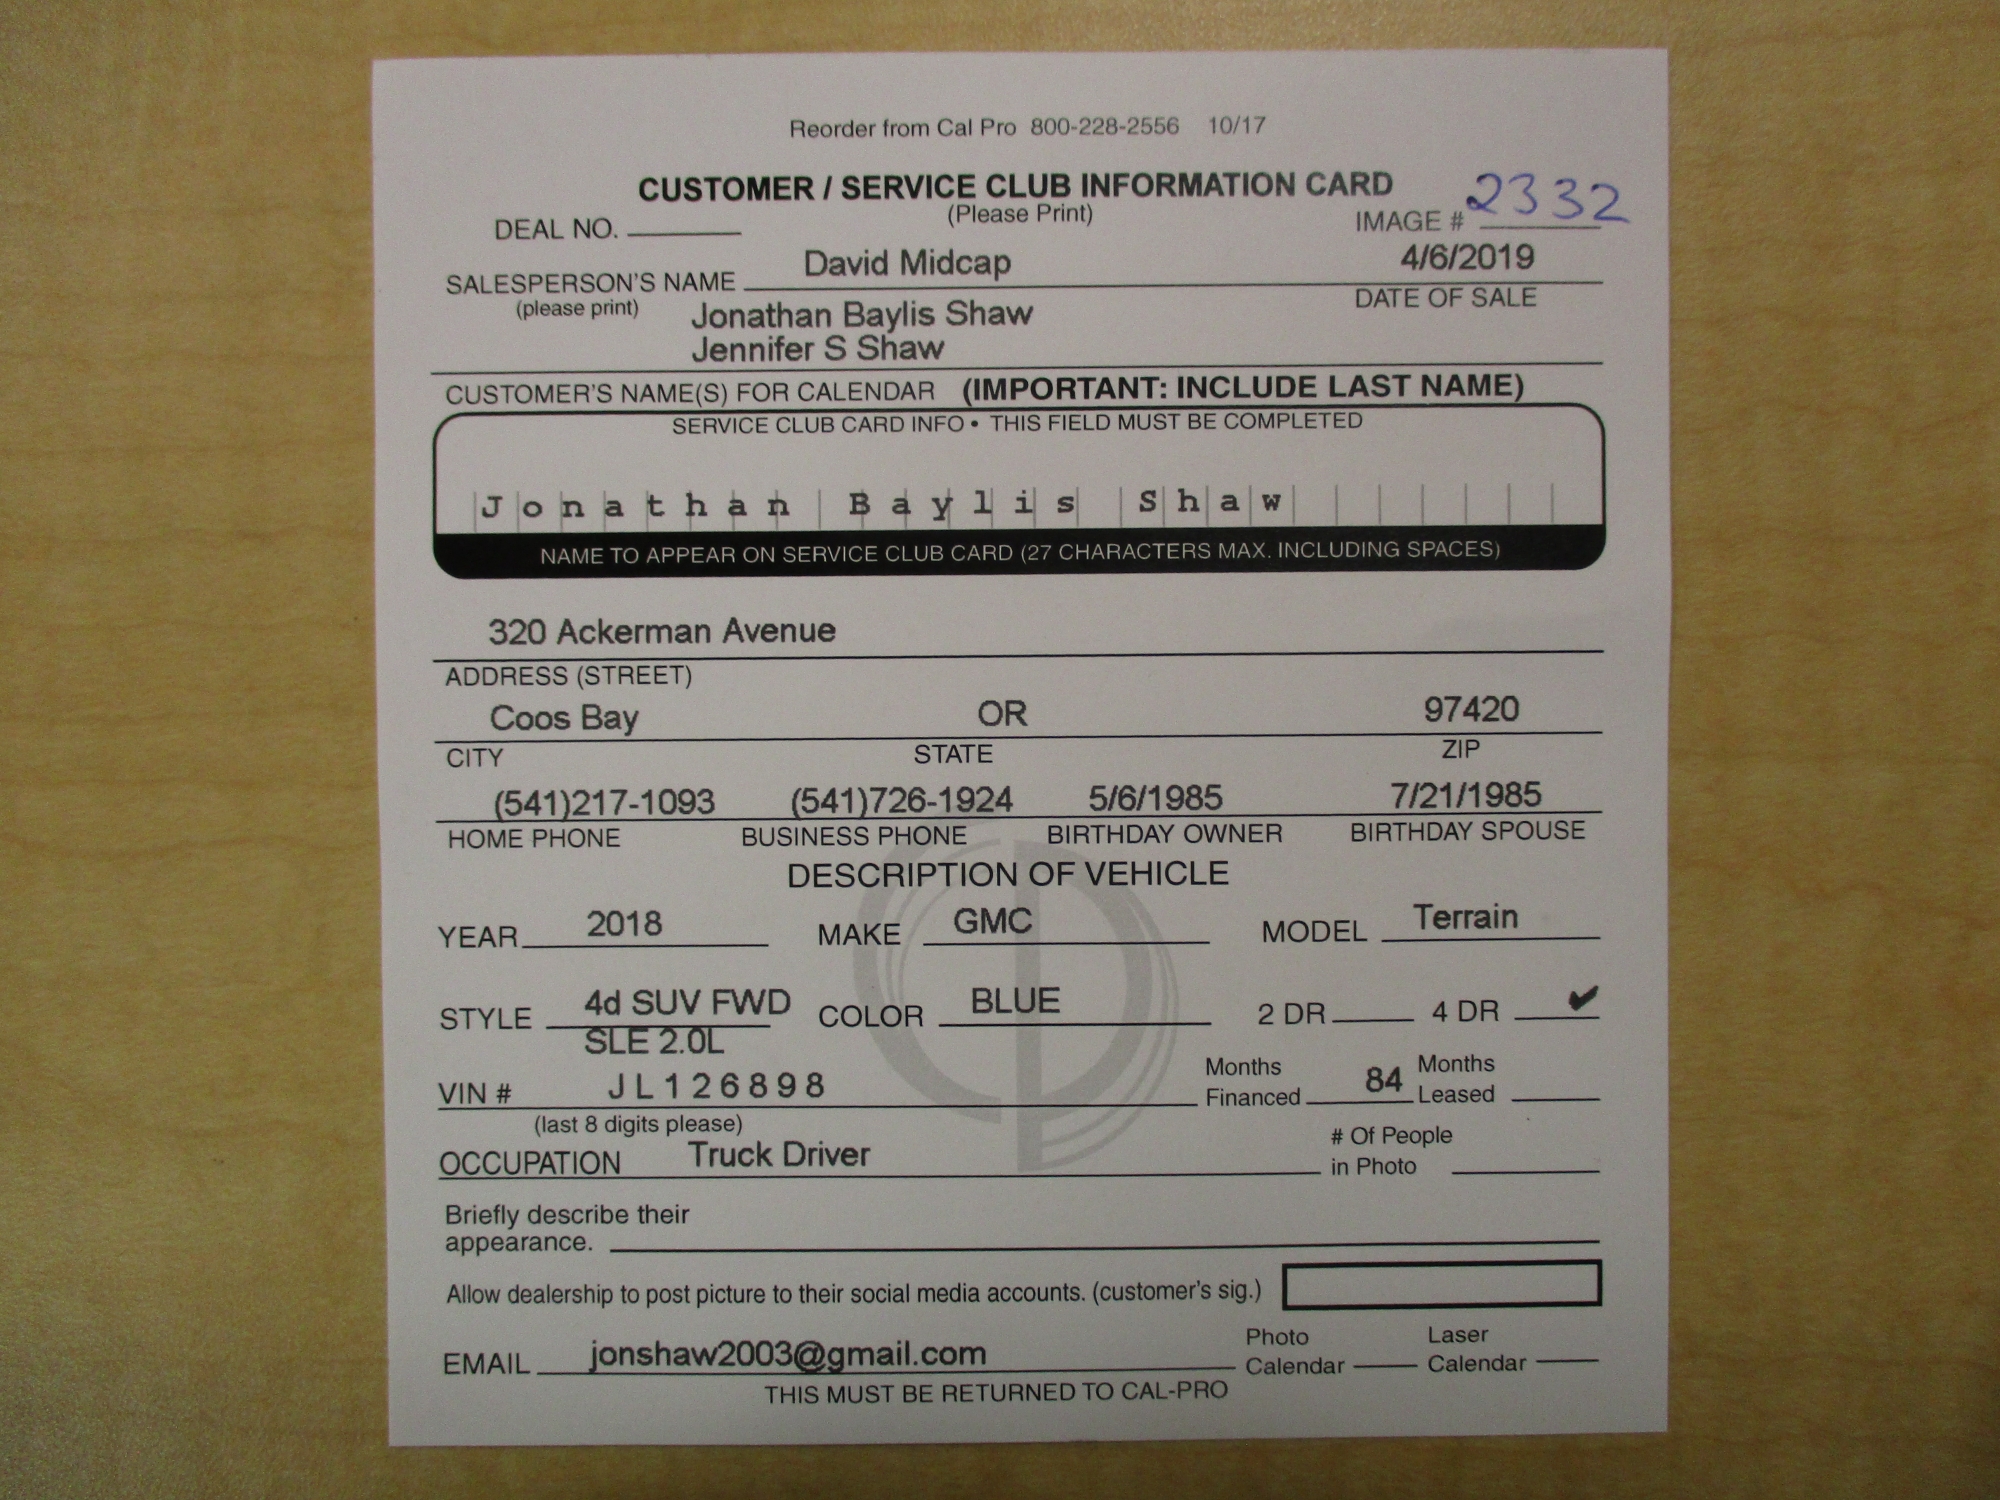 Reorder from Cal Pro 800-228-2556 10/17
CUSTOMER / SERVICE CLUB INFORMATION CARD
(Please Print)
DEAL NO.
IMAGE # 2332
SALESPERSON'S NAME David Midcap 4/6/2019
(please print) DATE OF SALE
Jonathan Baylis Shaw
Jennifer S Shaw
CUSTOMER'S NAME(S) FOR CALENDAR (IMPORTANT: INCLUDE LAST NAME)
SERVICE CLUB CARD INFO • THIS FIELD MUST BE COMPLETED
Jonathan Baylis Shaw
NAME TO APPEAR ON SERVICE CLUB CARD (27 CHARACTERS MAX. INCLUDING SPACES)
320 Ackerman Avenue
ADDRESS (STREET)
Coos Bay OR 97420
CITY STATE ZIP
(541)217-1093 (541)726-1924 5/6/1985 7/21/1985
HOME PHONE BUSINESS PHONE BIRTHDAY OWNER BIRTHDAY SPOUSE
DESCRIPTION OF VEHICLE
YEAR 2018 MAKE GMC MODEL Terrain
STYLE 4d SUV FWD COLOR BLUE 2 DR 4 DR ✔
SLE 2.0L
VIN # JL126898 Months Financed 84 Months Leased
(last 8 digits please)
OCCUPATION Truck Driver # Of People in Photo
Briefly describe their
appearance.
Allow dealership to post picture to their social media accounts. (customer's sig.)
EMAIL jonshaw2003@gmail.com Photo Calendar Laser Calendar
THIS MUST BE RETURNED TO CAL-PRO